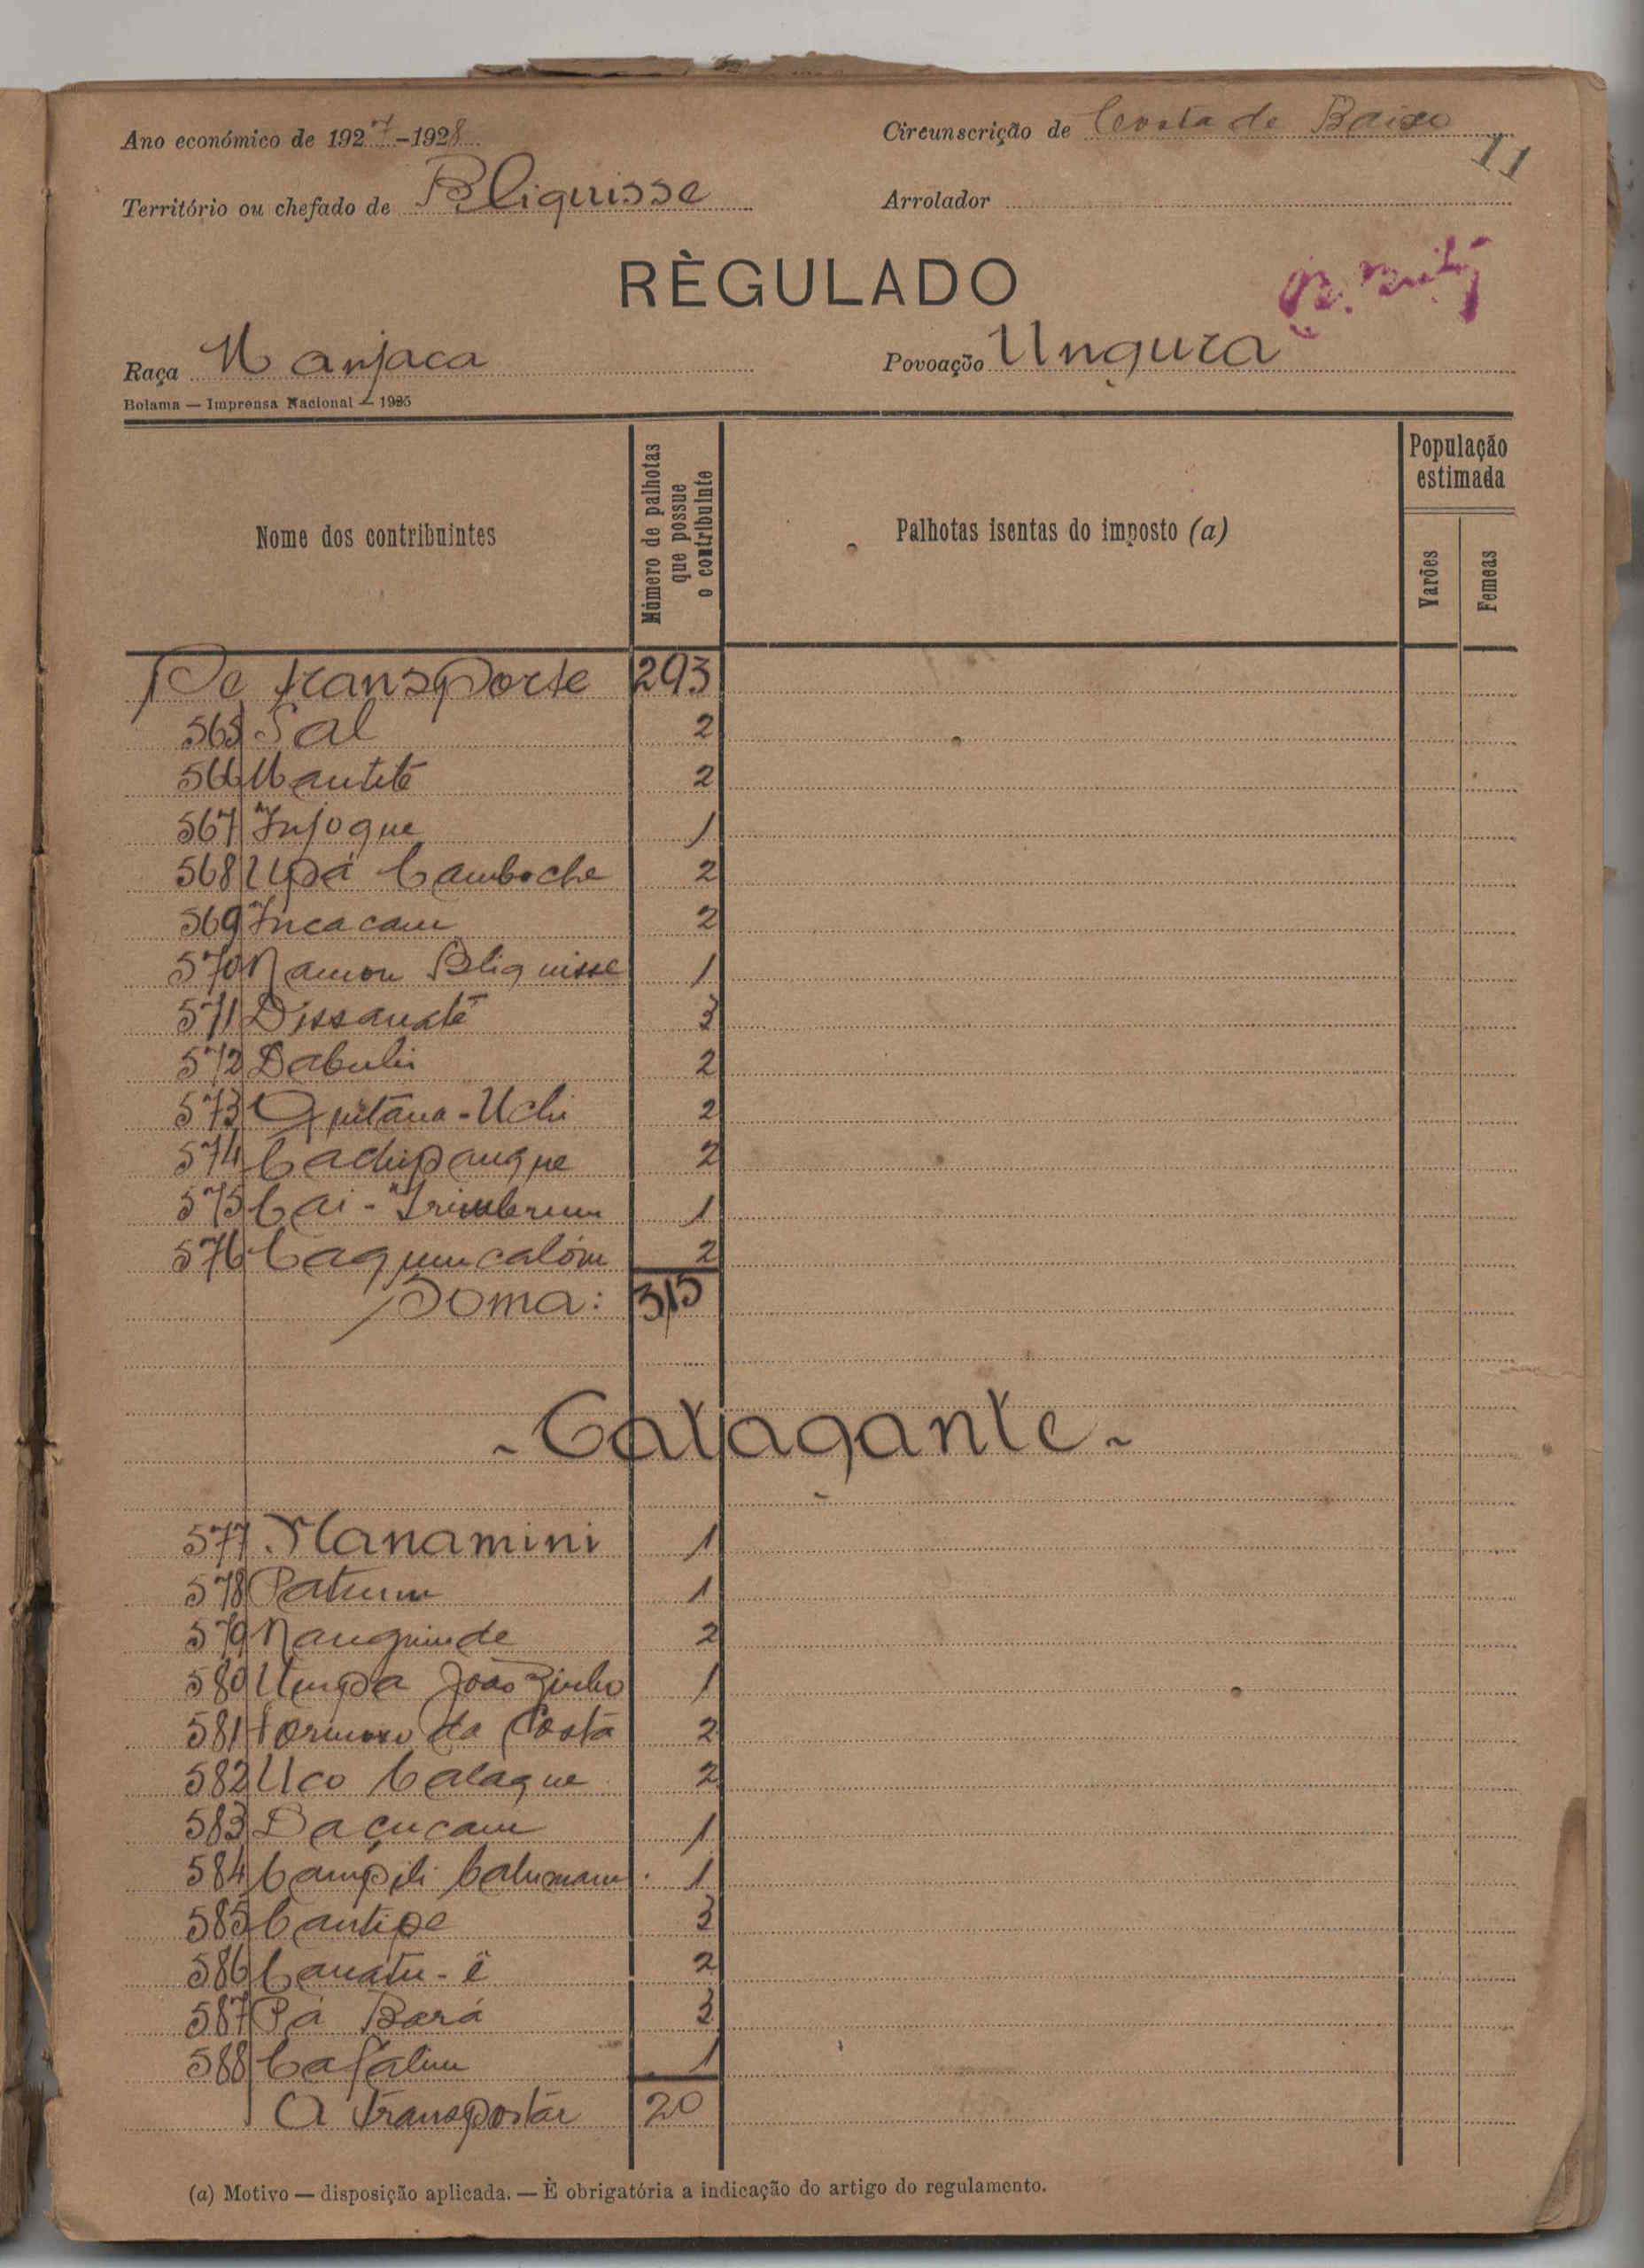 Ano económico de 1927-1928
Circunscrição de Costa de Baixo
11
Território ou chefado de Bliquisse
Arrolador
RÈGULADO
Raça Manjaca
Povoação Ungura
Bolama — Imprensa Nacional — 1925
Nome dos contribuintes
Número de palhotas que possue o contribuinte
Palhotas isentas do imposto (a)
População estimada
Varões
Femeas
De transporte 293
565 Sal 2
566 Mantité 2
567 Injoque 1
568 Upá Camboche 2
569 Incacam 2
570 Namon Bliquisse 1
571 Dissanaté 3
572 Dabuli 2
573 Quitána-Uchi 2
574 Cachipangue 2
575 Cai- 1
576 Caqumcalóm 2
Soma: 315
- Catagante -
577 Nanamini 1
578 Patum 1
579 Nanguinde 2
580 Umpa Joãozinho 1
581 Formoso da Costa 2
582 Uco Calaque 2
583 Daçucam 1
584 Campili 1
585 Cantipe 3
586 Canatu-ê 2
587 Pá Bará 3
588 Cafalim 1
A transportar 20
(a) Motivo — disposição aplicada. — È obrigatória a indicação do artigo do regulamento.